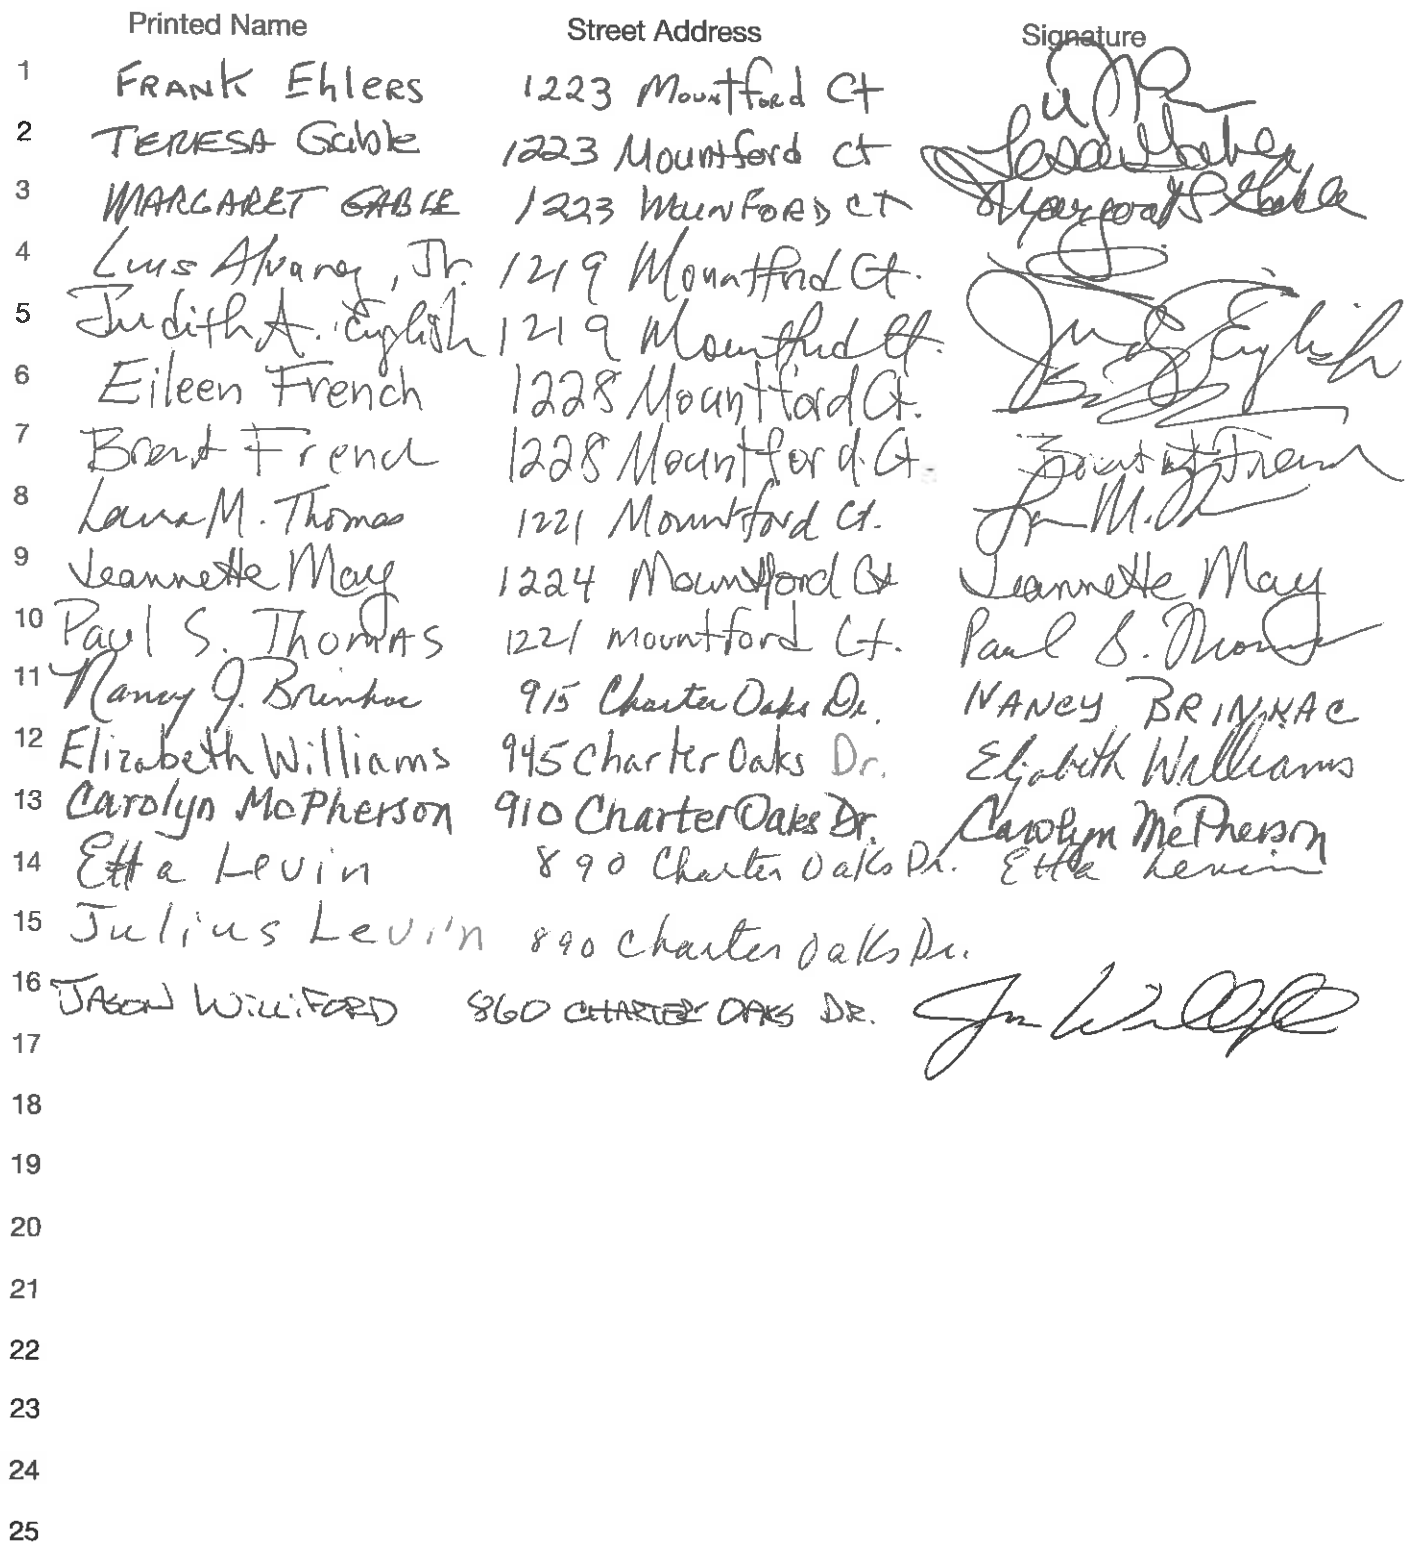 Printed Name Street Address Signature
1 FRANK Ehlers 1223 Mountford Ct
2 TERESA Gable 1223 Mountford Ct
3 MARGARET GABLE 1223 MUNFORD CT Margaret Gable
4 Luis Alvarez, Jr. 1219 Mountford Ct.
5 Judith A. English 1219 Mountford Ct. Judy English
6 Eileen French 1228 Mountford Ct.
7 Brent French 1228 Mountford Ct. French
8 Laura M. Thomas 1221 Mountford Ct.
9 Jeannette May 1224 Mountford Ct Jeannette May
10 Paul S. Thomas 1221 mountford Ct. Paul S. Thomas
11 Nancy J. Brinkac 915 Charter Oaks Dr. NANCY BRINKAC
12 Elizabeth Williams 945 Charter Oaks Dr. Elizabeth Williams
13 Carolyn McPherson 910 Charter Oaks Dr. Carolyn McPherson
14 Etta Levin 890 Charter Oaks Dr. Etta Levin
15 Julius Levin 890 Charter Oaks Dr.
16 JASON WILLIFORD 860 CHARTER OAKS DR.
17
18
19
20
21
22
23
24
25